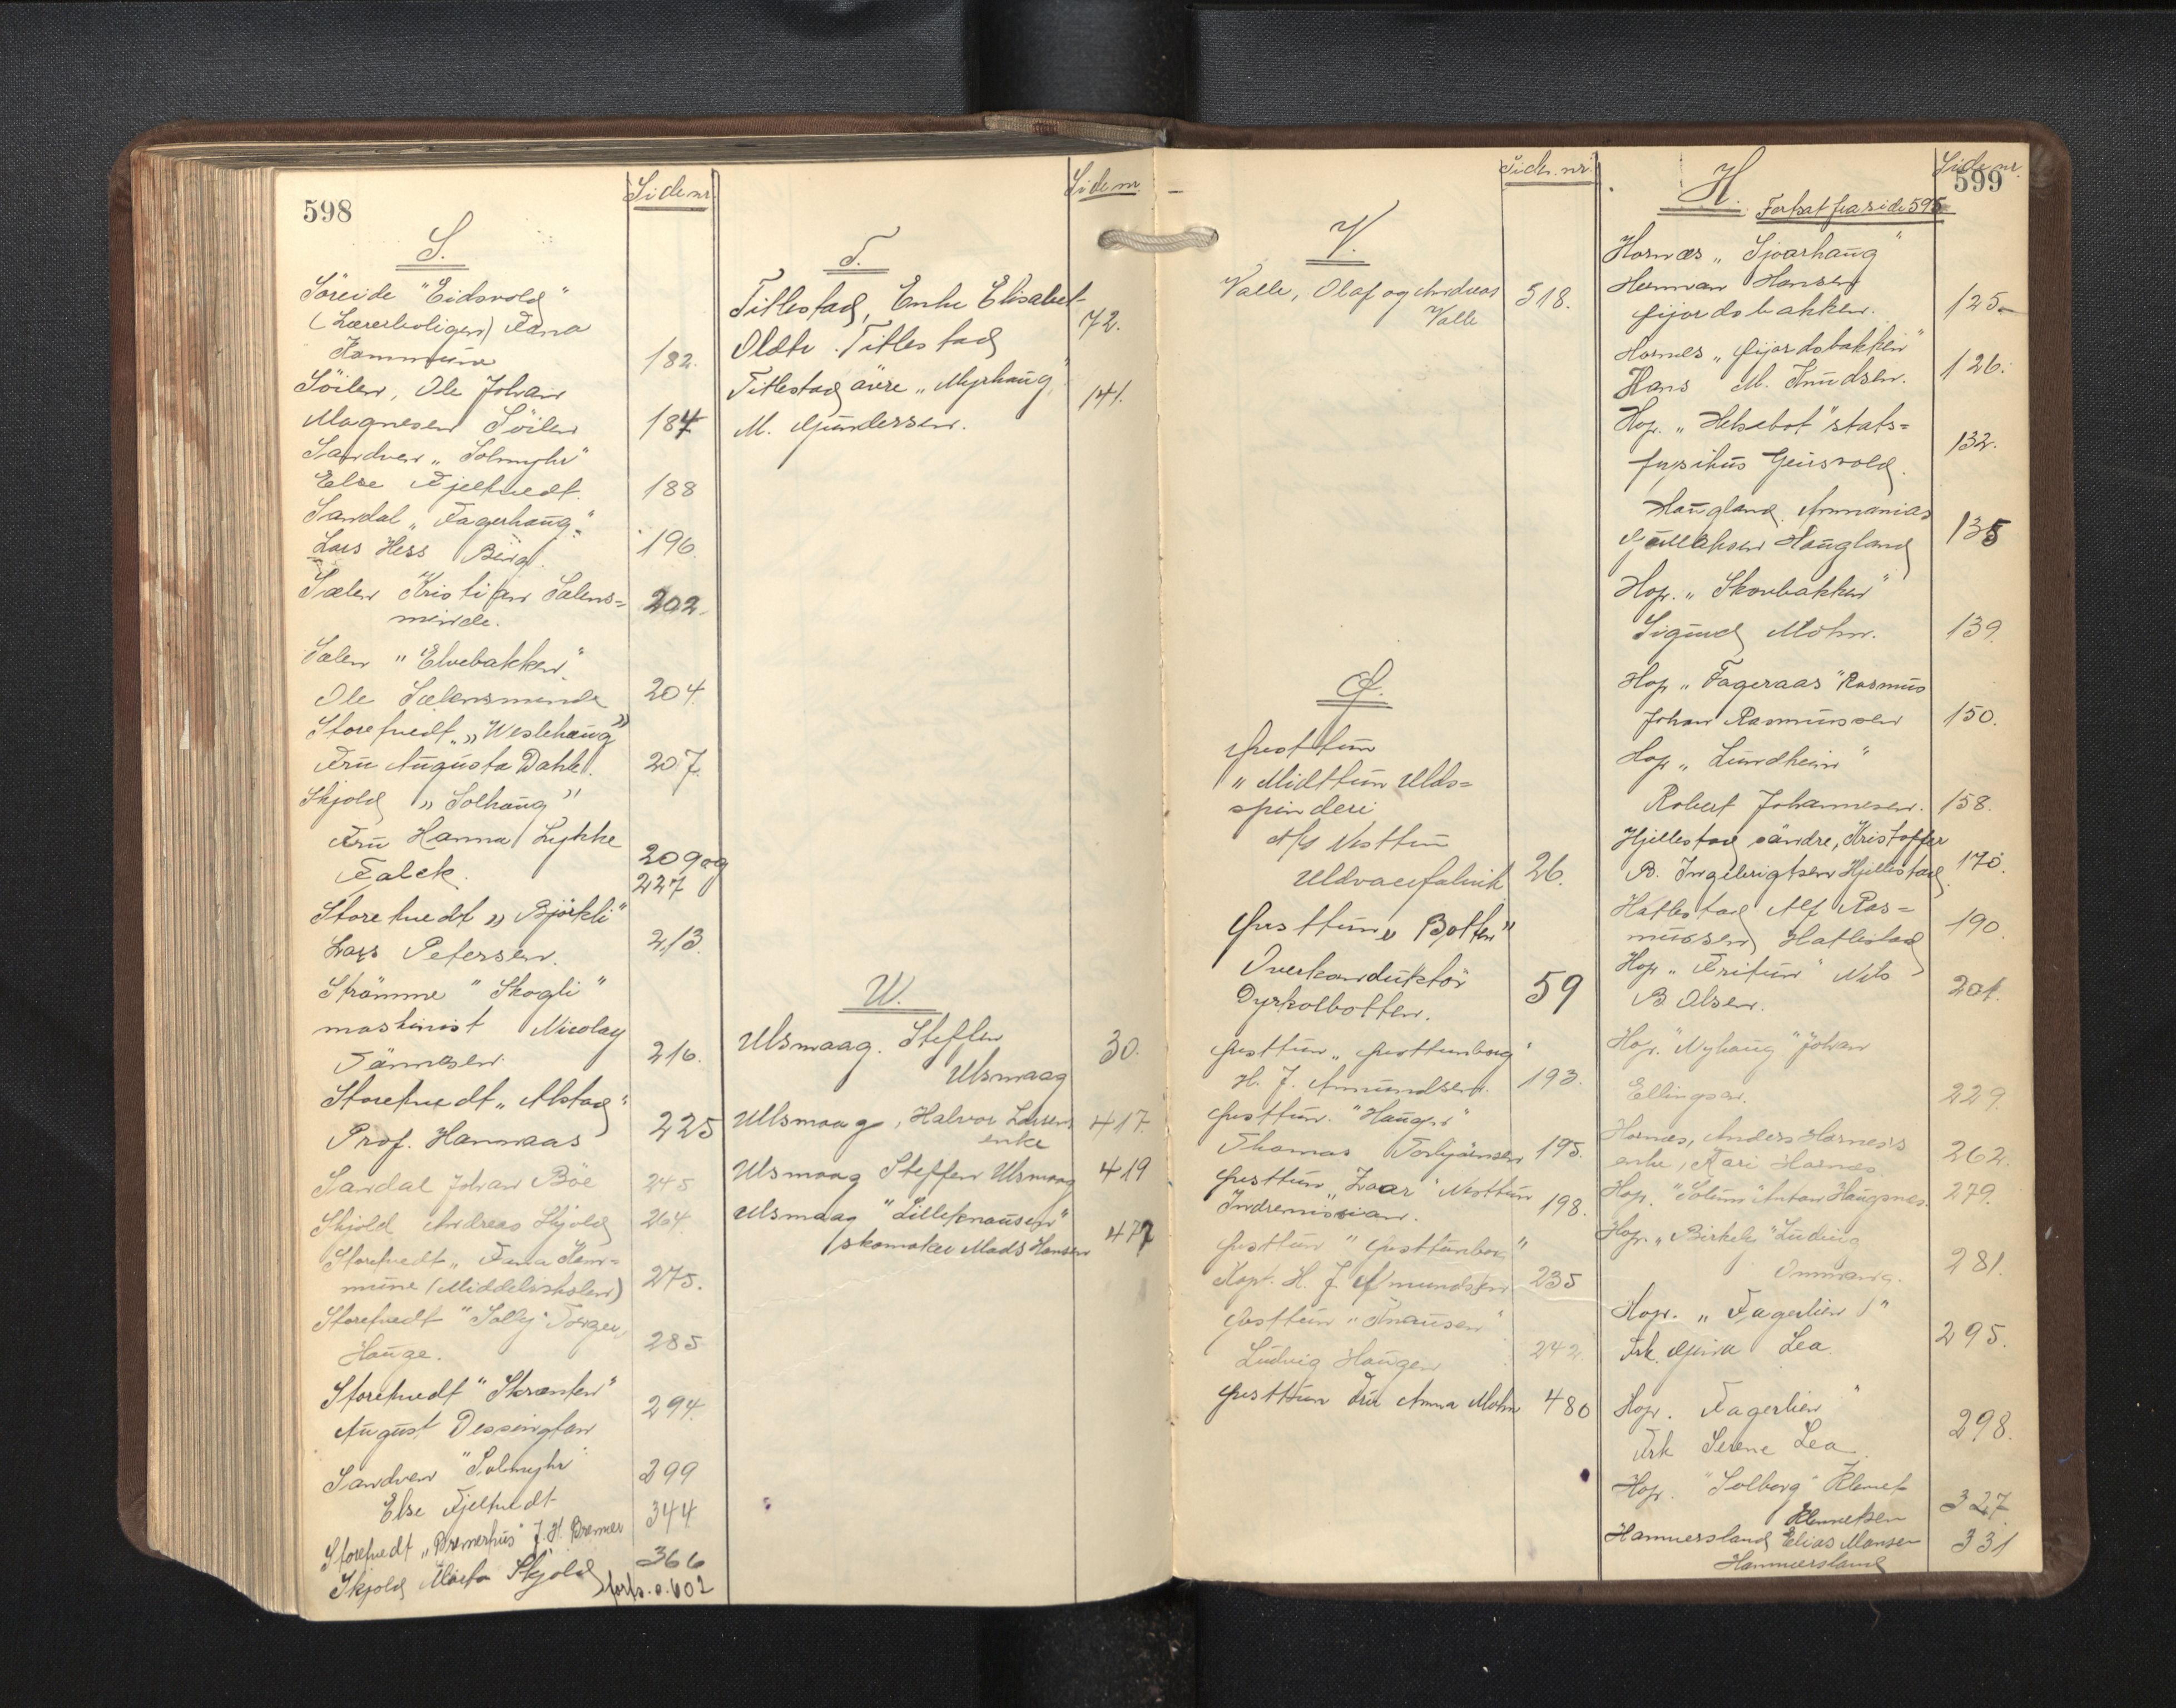 598
Side nr.
S.
Söreide "Eidsvold"
(Lærerboligen) Fana
Kommune 182.
Söilen, Ole Johan
Magnesen Söilen 184
Sandven „Solmyhr"
Else Fjeltvedt. 188
Sandal „Fagerhaug."
Lars Hess Bing. 196.
Sælen Kristian Sælens=
minde. 202.
Sælen "Elvebakken".
Ole Sælensminde 204.
Storetvedt „Weslehaug"
Fru Augusta Dahl. 207.
Skjold „Solhaug"
Fru Hanna Lykke
Falck. 209 og
227
Storetvedt „Björkli"
Lars Petersen. 213.
Strömme "Skogli"
maskinist Nicolay
Tönnesen. 216.
Storetvedt „Alstad"
Prof. Hannaas 225
Sandal Johan Böe 245
Skjold Andreas Skjold 264.
Storetvedt „Fana Kom=
mune (Middelskolen) 275.
Storetvedt "Solbj" Torger
Hauge. 285
Storetvedt "Skrænten"
August Dessington 294.
Sandven "Solmyhr"
Else Fjeltvedt 299
Storetvedt „Bremerhus" J. H. Bremer 344
Skjold Marta Skjold 366
forts. s. 602
Side nr.
T.
Titlestad, Enke Elisabet
Oldte. Titlestad 72.
Titlestad övre „Myrhaug"
M. Gundersen. 141.
U.
Ulsmaag. Steffen
Ulsmaag 30.
Ullsmaag, Halvor Larsens
enke 417
Ulsmaag Steffen Ulsmaag 419
Ulsmaag "Lilleknausen"
skomaker Mads Hansen 477
Side. nr.
V.
Valle, Olaf og Andreas
Valle 318.
Ø.
Østtun
"Midttun Ulds=
spinderi
A/S Nesttun
Uldvarefabrik 26.
Østtun „Botten"
Overkonduktör
Dyrkolbotten. 59
Østtun „Østtunborg"
H. J. Amundsen. 193.
Østtun. "Haugen"
Thomas Torbjörnsen 195.
Østtun "Zoar" Nesttun
Indremission. 198.
Østtun "Østtunborg"
Kapt. H. J. Amundsen 235
Østtun "Knausen"
Ludvig Haugen 242
Østtun Fru Anna Mohn 480
Side nr.
599
H.
Fortsat fra side 595
Hornæs „Sjoarhaug"
Herman Hansen
Gjordsbakken. 125.
Hornes „Gjordsbakken"
Hans M. Knudsen. 126.
Hop. „Helsebot" stats=
fysikus Geirsvold. 132.
Haugland. Ammanias
Haugland 135
Hop. „Skoubakken"
Sigurd Mohn. 139.
Hop „Fageraas" Rasmus
Johan Rasmussen 150.
Hop „Lundheim"
Robert Johannesen. 158.
Hjellestad söndre, Kristoffer
B. Ingebrigtsen Hjellestad 170.
Hatlestad Alf Ras=
mussen Hatlestad 190.
Hop „Fritun" Nils
B Olsen. 201.
Hop. "Nyhaug" Johan
Ellingsen. 229
Hornæs, Anders Hornes's
enke, Kari Hornæs. 262.
Hop. "Soltun" Anton Haugsnes. 279.
Hop. „Birkely" Ludvig
281.
Hop. „Fagerlien"
Frk. Lea. 295.
Hop. Fagerlien"
Frk Serene Lea 298.
Hop. "Solborg" Klemet
Klemetsen 327.
Hammersland Elias Monsen
Hammersland 331